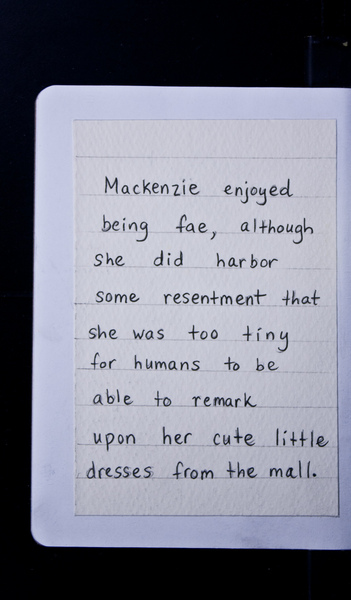 Mackenzie enjoyed
being fae, although
she did harbor
some resentment that
she was too tiny
for humans to be
able to remark
upon her cute little
dresses from the mall.